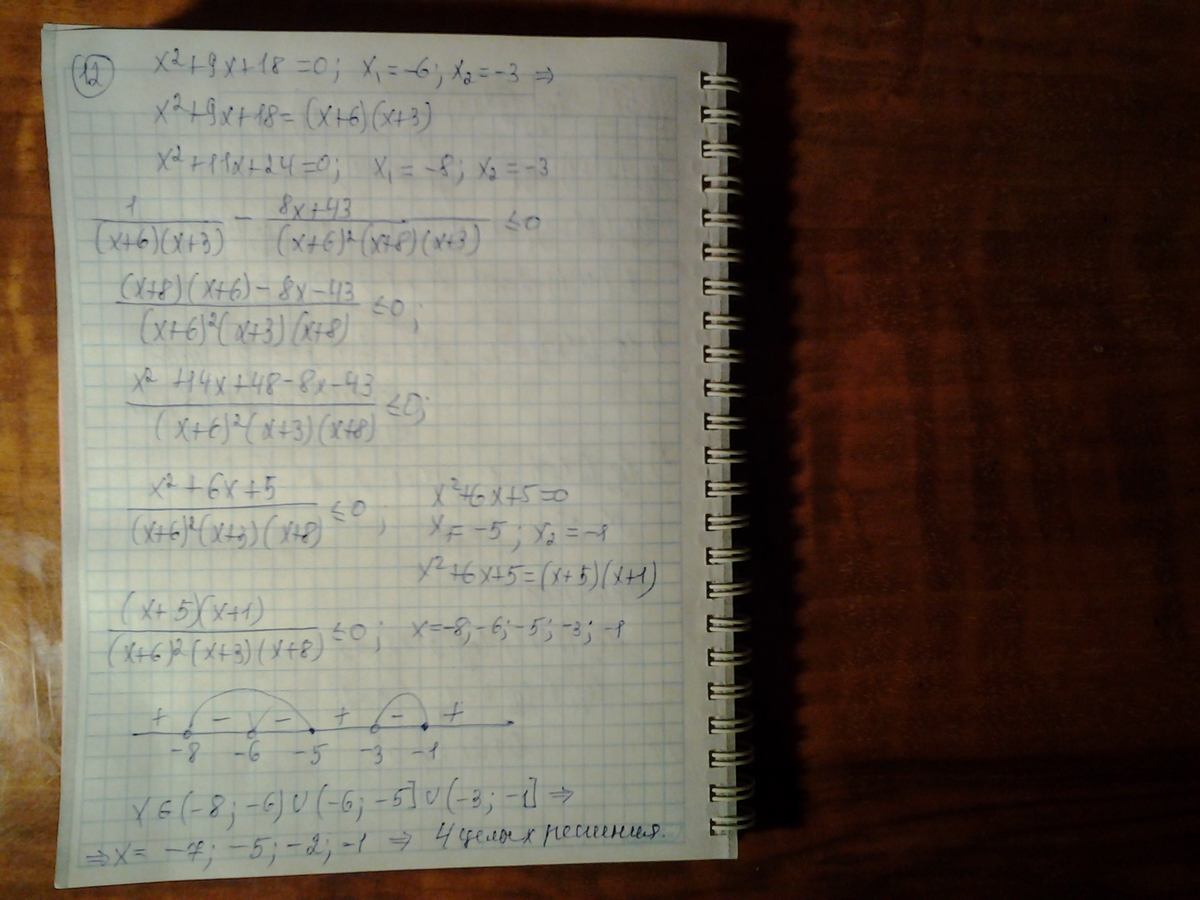 12 x²+9x+18=0; x₁=-6; x₂=-3 ⇒
x²+9x+18=(x+6)(x+3)
x²+11x+24=0; x₁=-8; x₂=-3
1/((x+6)(x+3)) - (8x+43)/((x+6)²(x+8)(x+3)) ≤0
((x+8)(x+6)-8x-43)/((x+6)²(x+3)(x+8)) ≤0;
(x²+14x+48-8x-43)/((x+6)²(x+3)(x+8)) ≤0;
(x²+6x+5)/((x+6)²(x+3)(x+8)) ≤0;
x²+6x+5=0
x₁=-5; x₂=-1
x²+6x+5=(x+5)(x+1)
((x+5)(x+1))/((x+6)²(x+3)(x+8)) ≤0; x=-8;-6;-5;-3;-1
+ - - + - +
-8 -6 -5 -3 -1
x∈(-8;-6)∪(-6;-5]∪(-3;-1] ⇒
⇒x= -7; -5; -2; -1 ⇒ 4 целых решения.